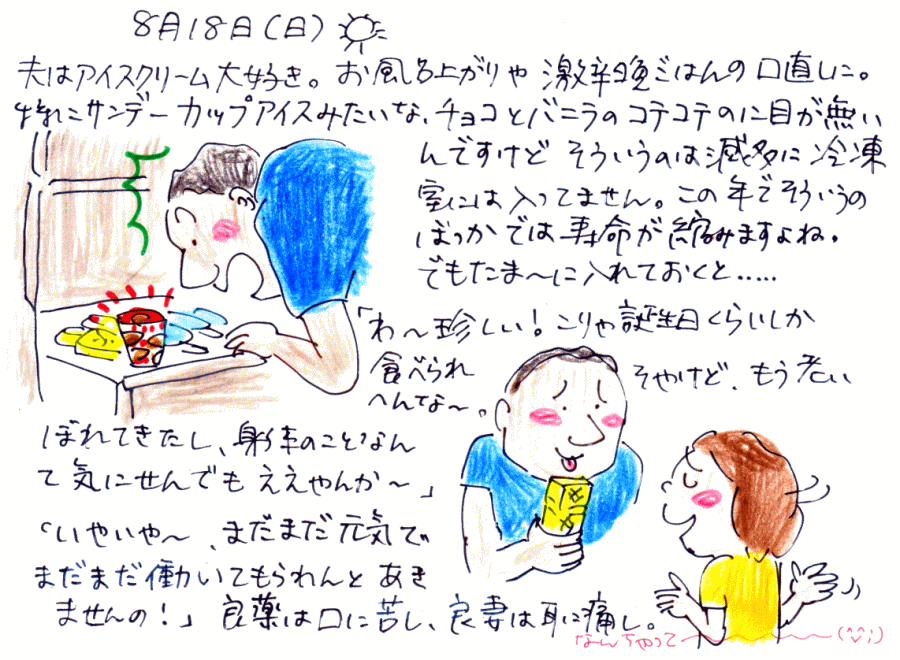 8月18日(日)
夫はアイスクリーム大好き。お風呂上がりや激辛晩ごはんの口直しに。
特にサンデーカップアイスみたいな、チョコとバニラのコテコテのに目が無い
んですけど そういうのは滅多に冷凍
室には入ってません。この年でそういうの
ばっかでは寿命が縮みますよね。
でもたま〜に入れておくと.....
「わ〜珍しい!こりゃ誕生日くらいしか
食べられ
へんな~。
そやけど、もう老い
ぼれてきたし、身体のことなん
て気にせんでもええやんか〜」
「いやいや〜、まだまだ元気で
まだまだ働いてもらわんとあき
ませんの!」良薬は口に苦し、良妻は耳に痛し。
なんちゃって〜(^^;)